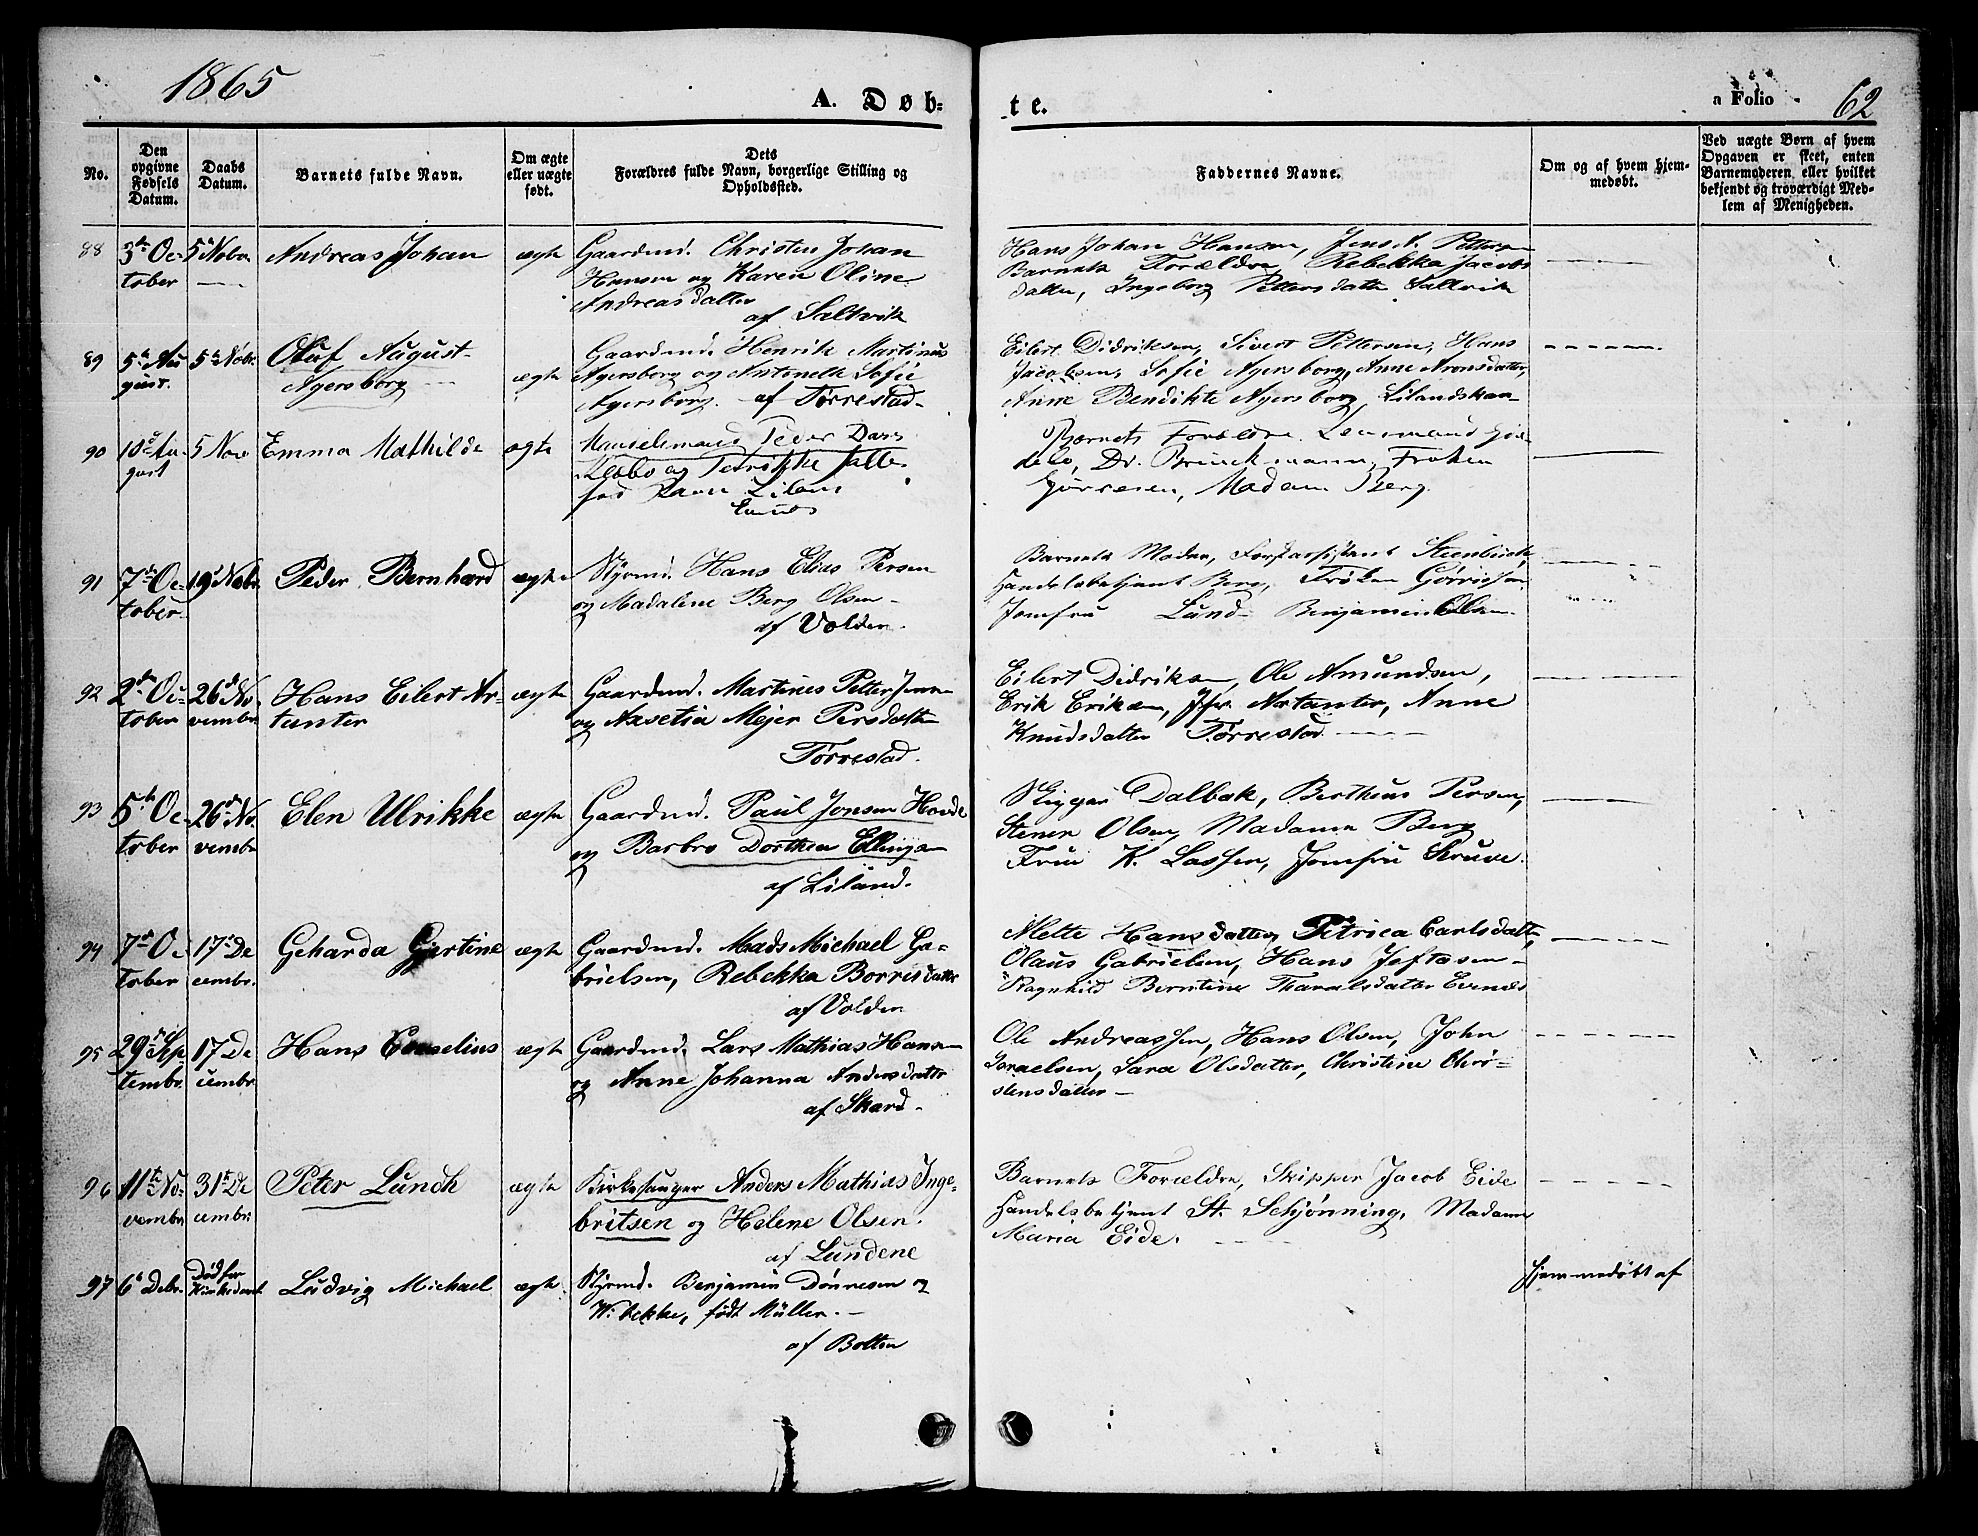 1865
A. Døb-
te.
a Folio
62
No.
Den opgivne Fødsels Datum.
Daabs Datum.
Barnets fulde Navn.
Om ægte eller uægte født.
Dets
Forældres fulde Navn, borgerlige Stilling og
Opholdsted.
Faddernes Navne.
Om og af hvem hjem-
medøbt.
Ved uægte Børn af hvem
Opgaven er skeet, enten
Barnemoderen eller hvilket
bekjendt og troværdigt Med-
lem af Menigheden.
88 3die Oc- 5 Nobr. Andreas Johan ægte Gaardmd. Christen Johan
tober
Hansen og Karen Oline
Andreasdatter
af Saltvik
Hans Johan Hansen, Jens A. Pettersen
Barnets Forældre, Rebekka Jacobs
datter, Ingeborg Pettersdatter Saltvik
89 5te Au 5te Nobr. Oluf August Gaardmd. Henrik Martinus
gust. Agersborg ægte Agersborg og Antonette Sofie
Agersborg. af Tørrestad
Eilert Didriksen, Sivert Pettersen, Hans
Jacobsen, Sofie Agersborg, Anne Aronsdatter,
Anne Bendikte Agersborg
90 10de Au 5 Nov Emma Mathilde ægte
gust
og Petrikke
Barnets Forældre. Lensmand
Dr. Brinckmann, Frøken
Madam Berg.
91 7de Oc- 19de Nobr. Peder Bernhard ægte Styrmd. Hans Elias Persen
tober
og Madalene Berg Olsen
af Volden.
Barnets Moder, Forstassistent
Handelsbetjent Berg, Frøken
Jomfru Lund Benjamin Olsen
92 2den Oc- 26de No- Hans Eilert Ar- ægte Gaardmd. Martines Petter Jensen
tober vembr. tanter
og Axsetia Mejer Persdatter
Tørrestad.
Eilert Didriksen, Ole Amundsen,
Erik Eriksen, Jfr. Artanter, Anne
Knudsdatter Tørrestad.
93 5te Oc- 26de No- Elen Ulrikke ægte Gaardmd. Paul Jonsen
tober vembr
og Barbro Dorthea
af Liland.
Dalbak, Bertheus Persen,
Stener Olsen, Madame Berg
Frue K. Lassen, Jomfru Struve.
94 7de Oc- 17de De Geharda Gjertine ægte Gaardmd. Mads Michael Ga-
tober cembr.
brielsen, Rebekka Borresdatter
af Volden
Mette Hansdatter, Petrica Carlsdatter,
Olaus Gabrielsen, Hans Jeftasen
Ragnhild Berntine Evenes
95 29de Sep 17de De Hans Cornelius ægte Gaardmd. Lars Mathias Hansen
tembr. cembr.
og Anne Johanna Andersdatter
af Skard.
Ole Andreassen, Hans Olsen, John
Israelsen, Sara Olsdatter, Christine Chri-
stensdatter
96 11te No- 31te De Peter Lundh ægte Kirkesanger Anders Mathias Inge-
vembr. cembr.
britsen og Helene Olsen.
af Lundene
Barnets Forældre, Skipper Jacob Eide
Handelsbetjent St. Schjønning, Madame
Maria Eide.
97 6te Debr. Død før Ludvig Michael ægte. Styrmd. Benjamin Dønnesen og
Wibekke, født Müller.
af Bolten
Hjemmedøbt af